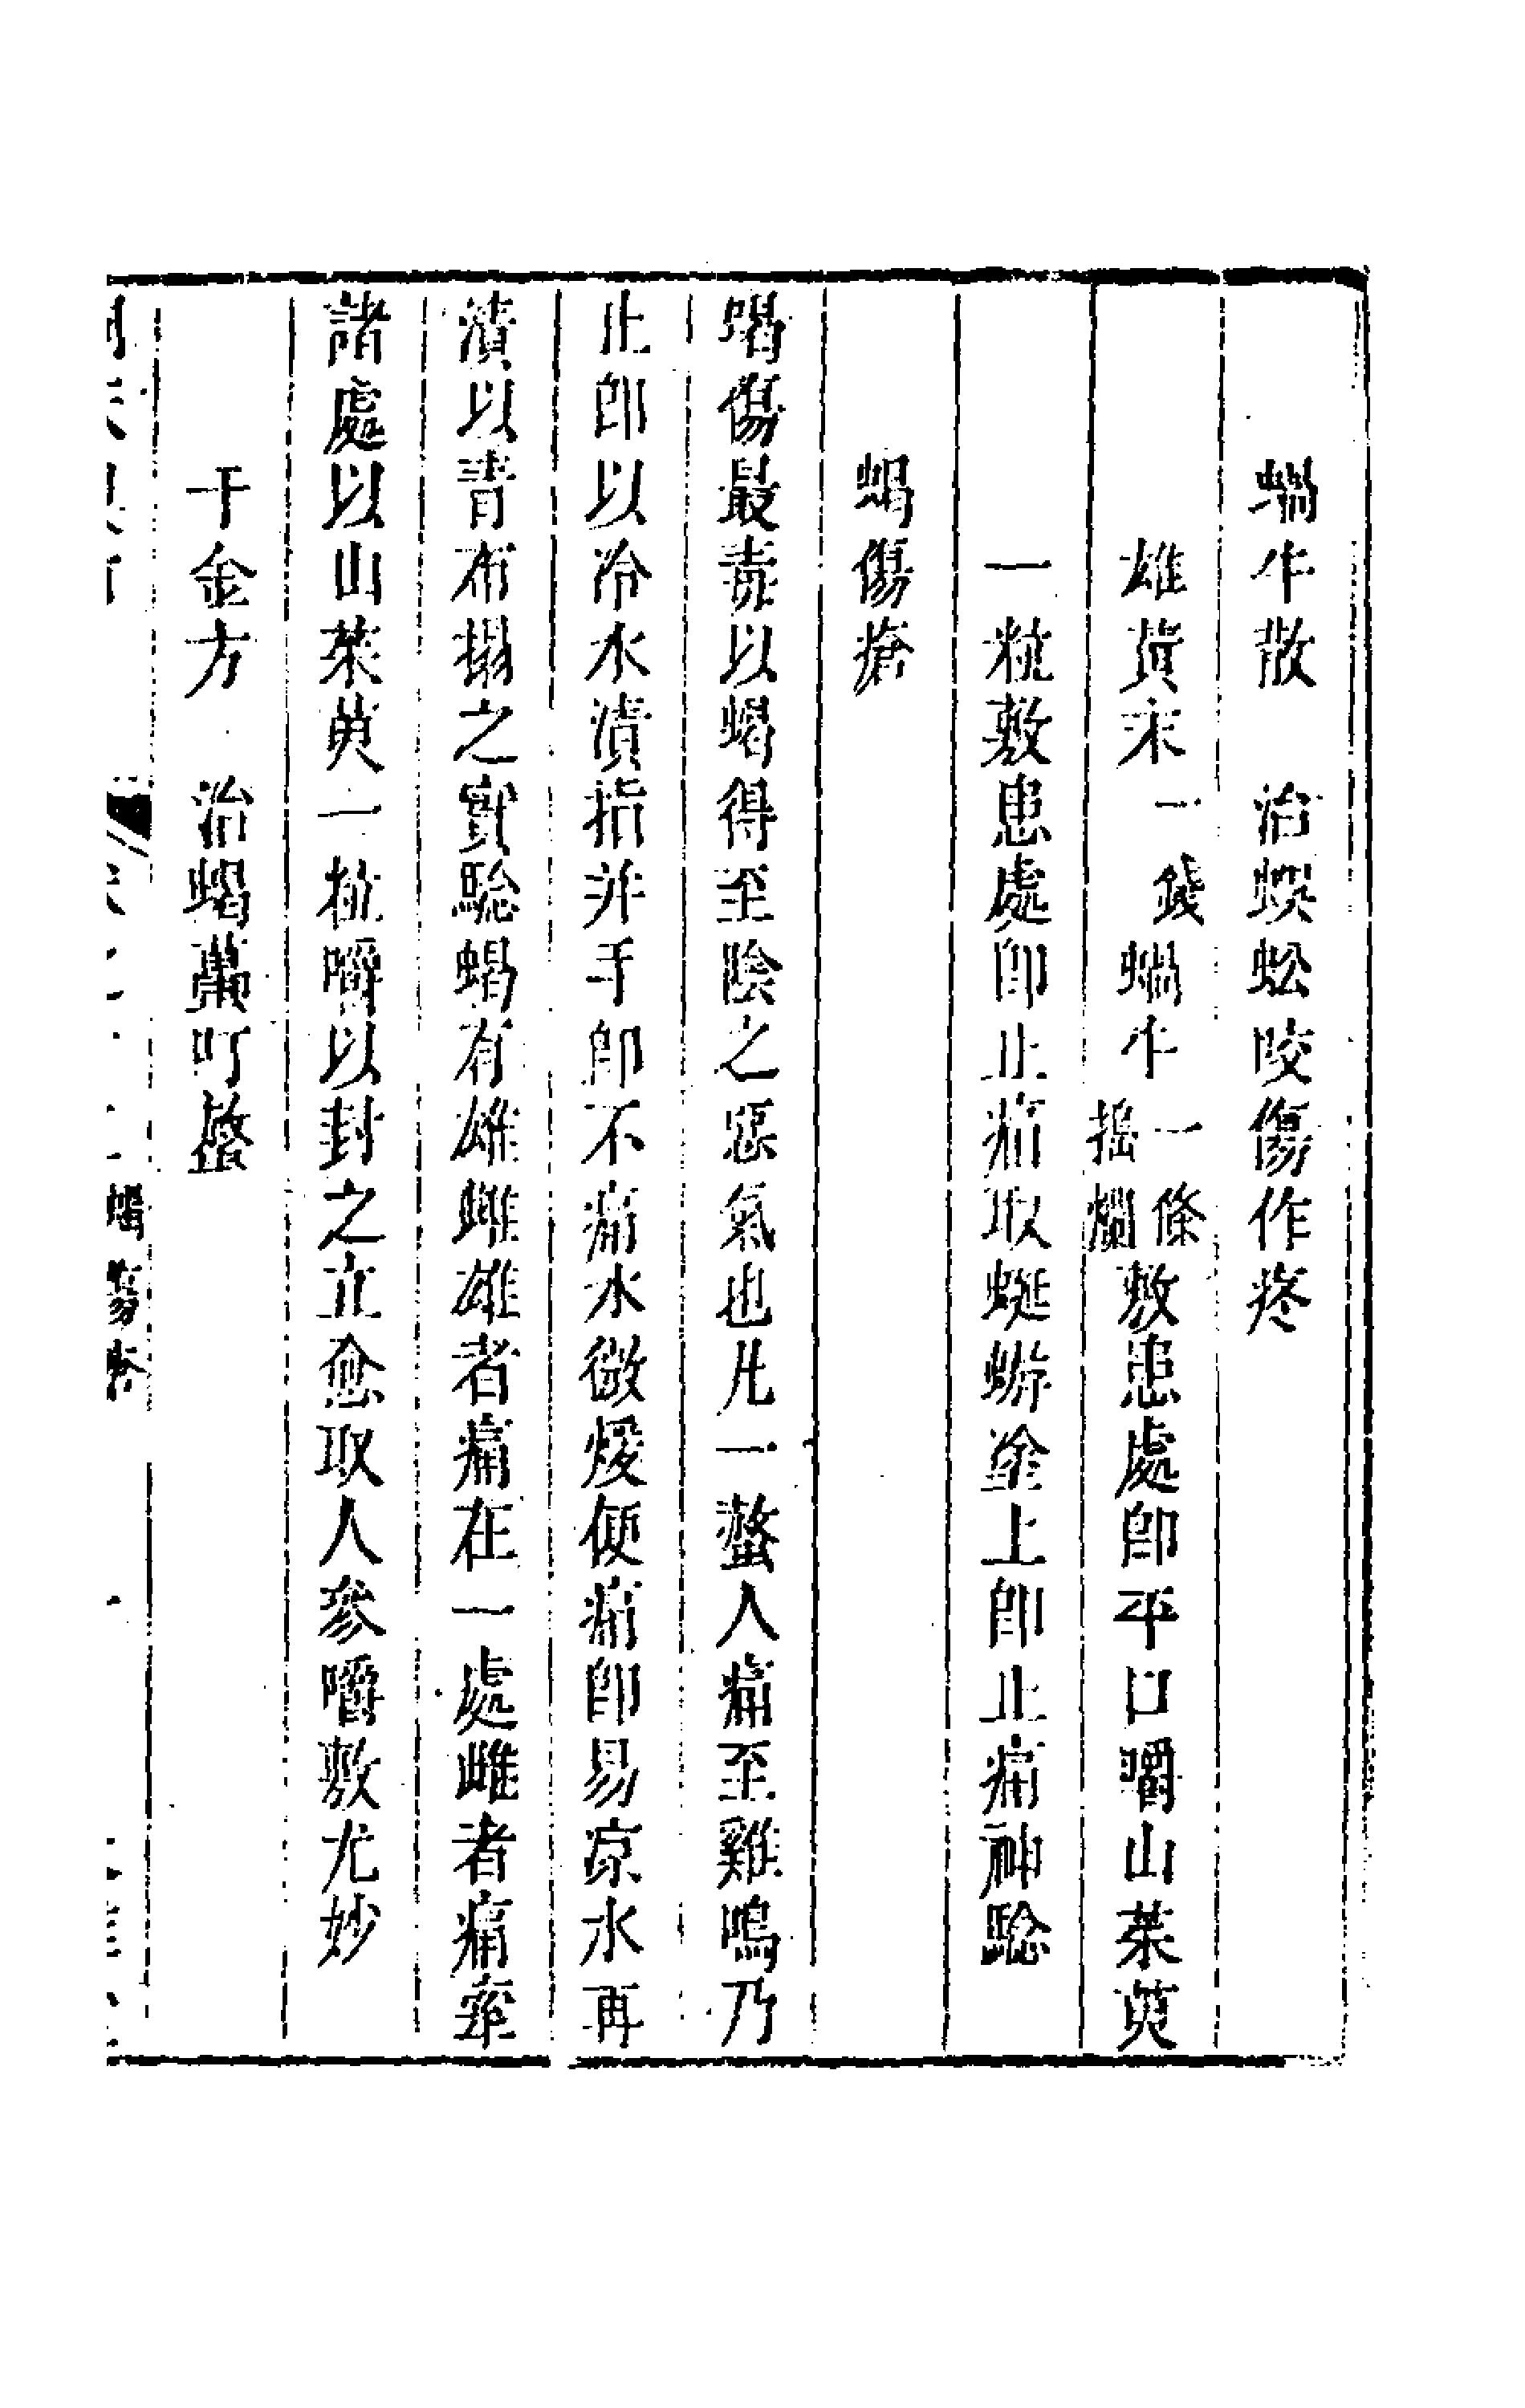 蝸牛散　治蜈蚣咬傷作疼
雄黃末一錢蝸牛一條搗爛敷患處即平口嚼山茱萸
一粒敷患處即止痛取蜒蝣塗上即止痛神驗
蝎傷瘡
蝎傷最毒以蝎得至陰之惡氣也凡一螫人痛至雞鳴乃
止即以冷水漬指并手即不痛水微煖便痛即易凉水再
漬以青布搨之實驗蝎有雄雌雄者痛在一處雌者痛牽
諸處以山茱萸一粒嚼以封之立愈取人參嚼敷尤妙
千金方　治蝎蠆叮螫
蝎傷瘡